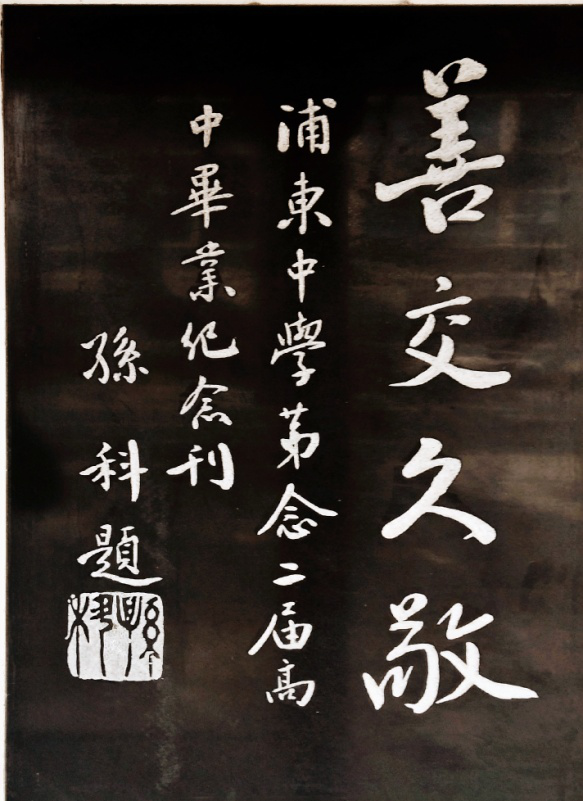 善交久敬
浦東中學第念二届高
中畢業纪念刊
孫科題